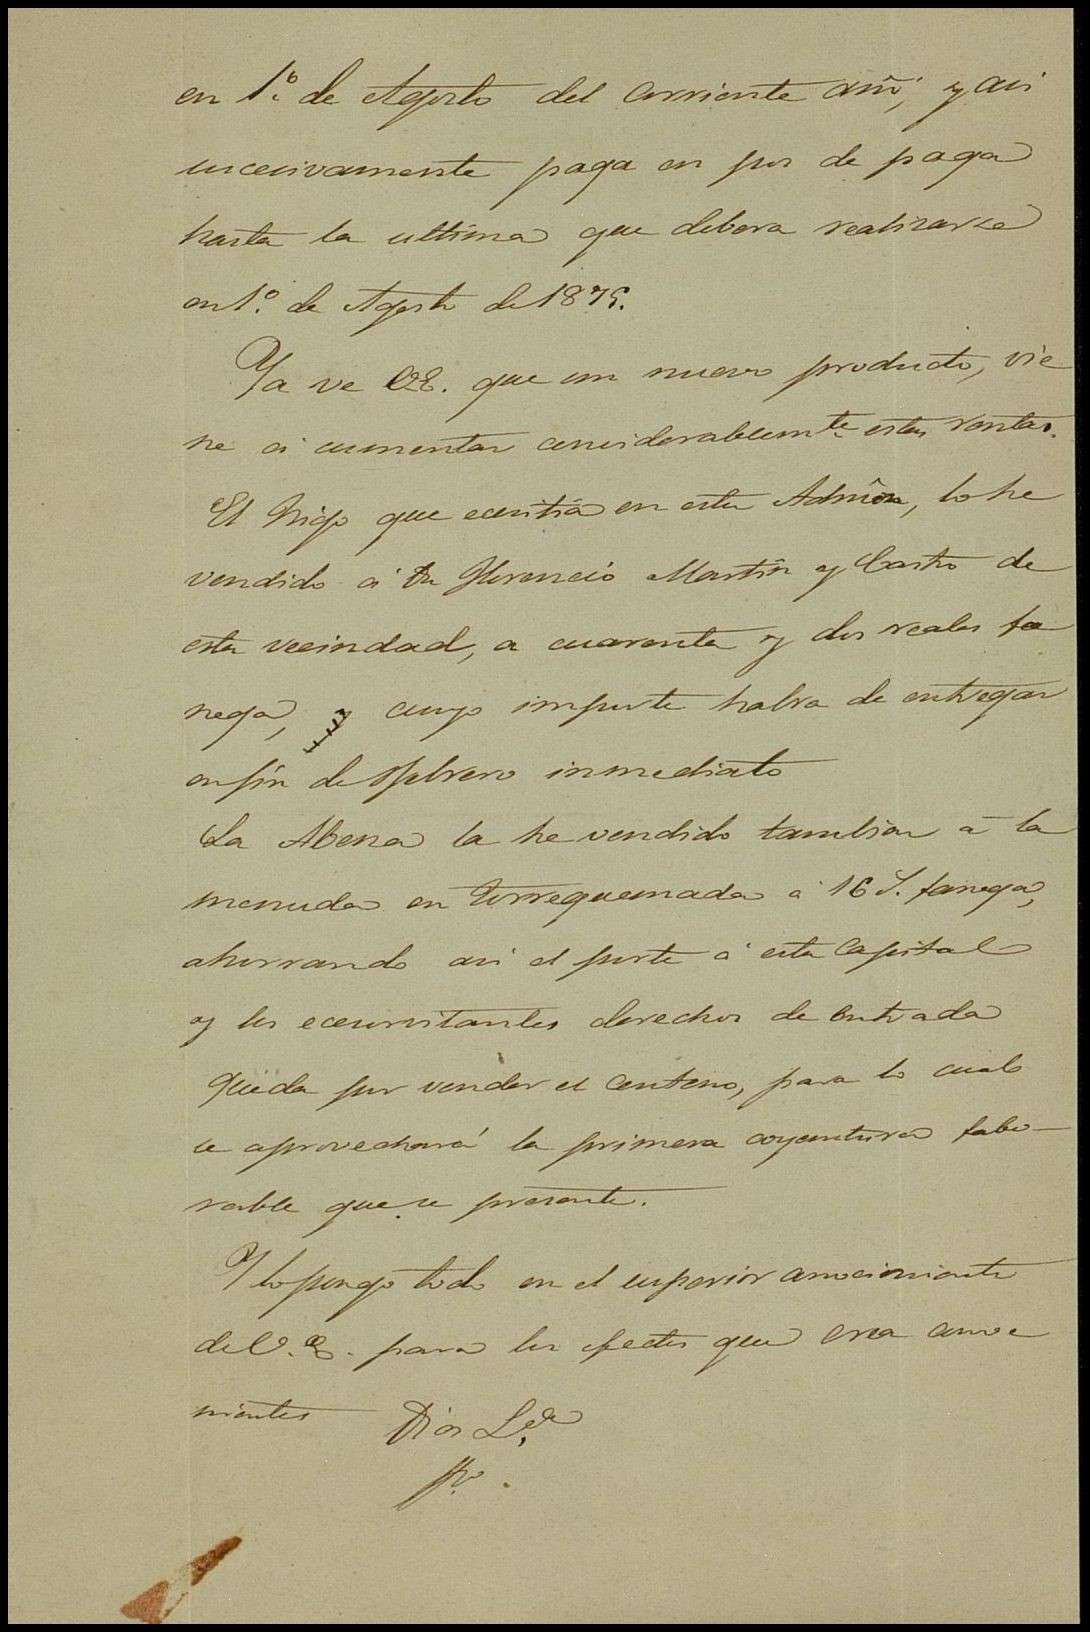 en 1º. de Agosto del corriente año, y asi
sucesivamente paga en pos de paga
hasta la ultima que debera realizarse
en 1º. de Agosto de 1875.
Ya ve V.E. que un nuevo producto, vie
ne á aumentar considerablemte. estas rentas.
El Trigo que ecsistia en esta Admôn, lo he
vendido á Dn Florencio Martin y Castro de
esta vecindad, a cuarenta y dos reales fa
nega, cuyo importe habra de entregar
en fin de Febrero inmediato
La Abena la he vendido tambien á la
menuda en Torrequemada á 16 fanega,
ahorrando asi el porte á esta Capital
y los ecsorvitantes derechos de entrada
Queda por vender el centeno, para lo cual
se aprovechará la primera coyuntura fabo-
rable que se presente.
Y lo pongo todo en el superior conocimiento
de V.E. para los efectos que crea conve
nientes Dios